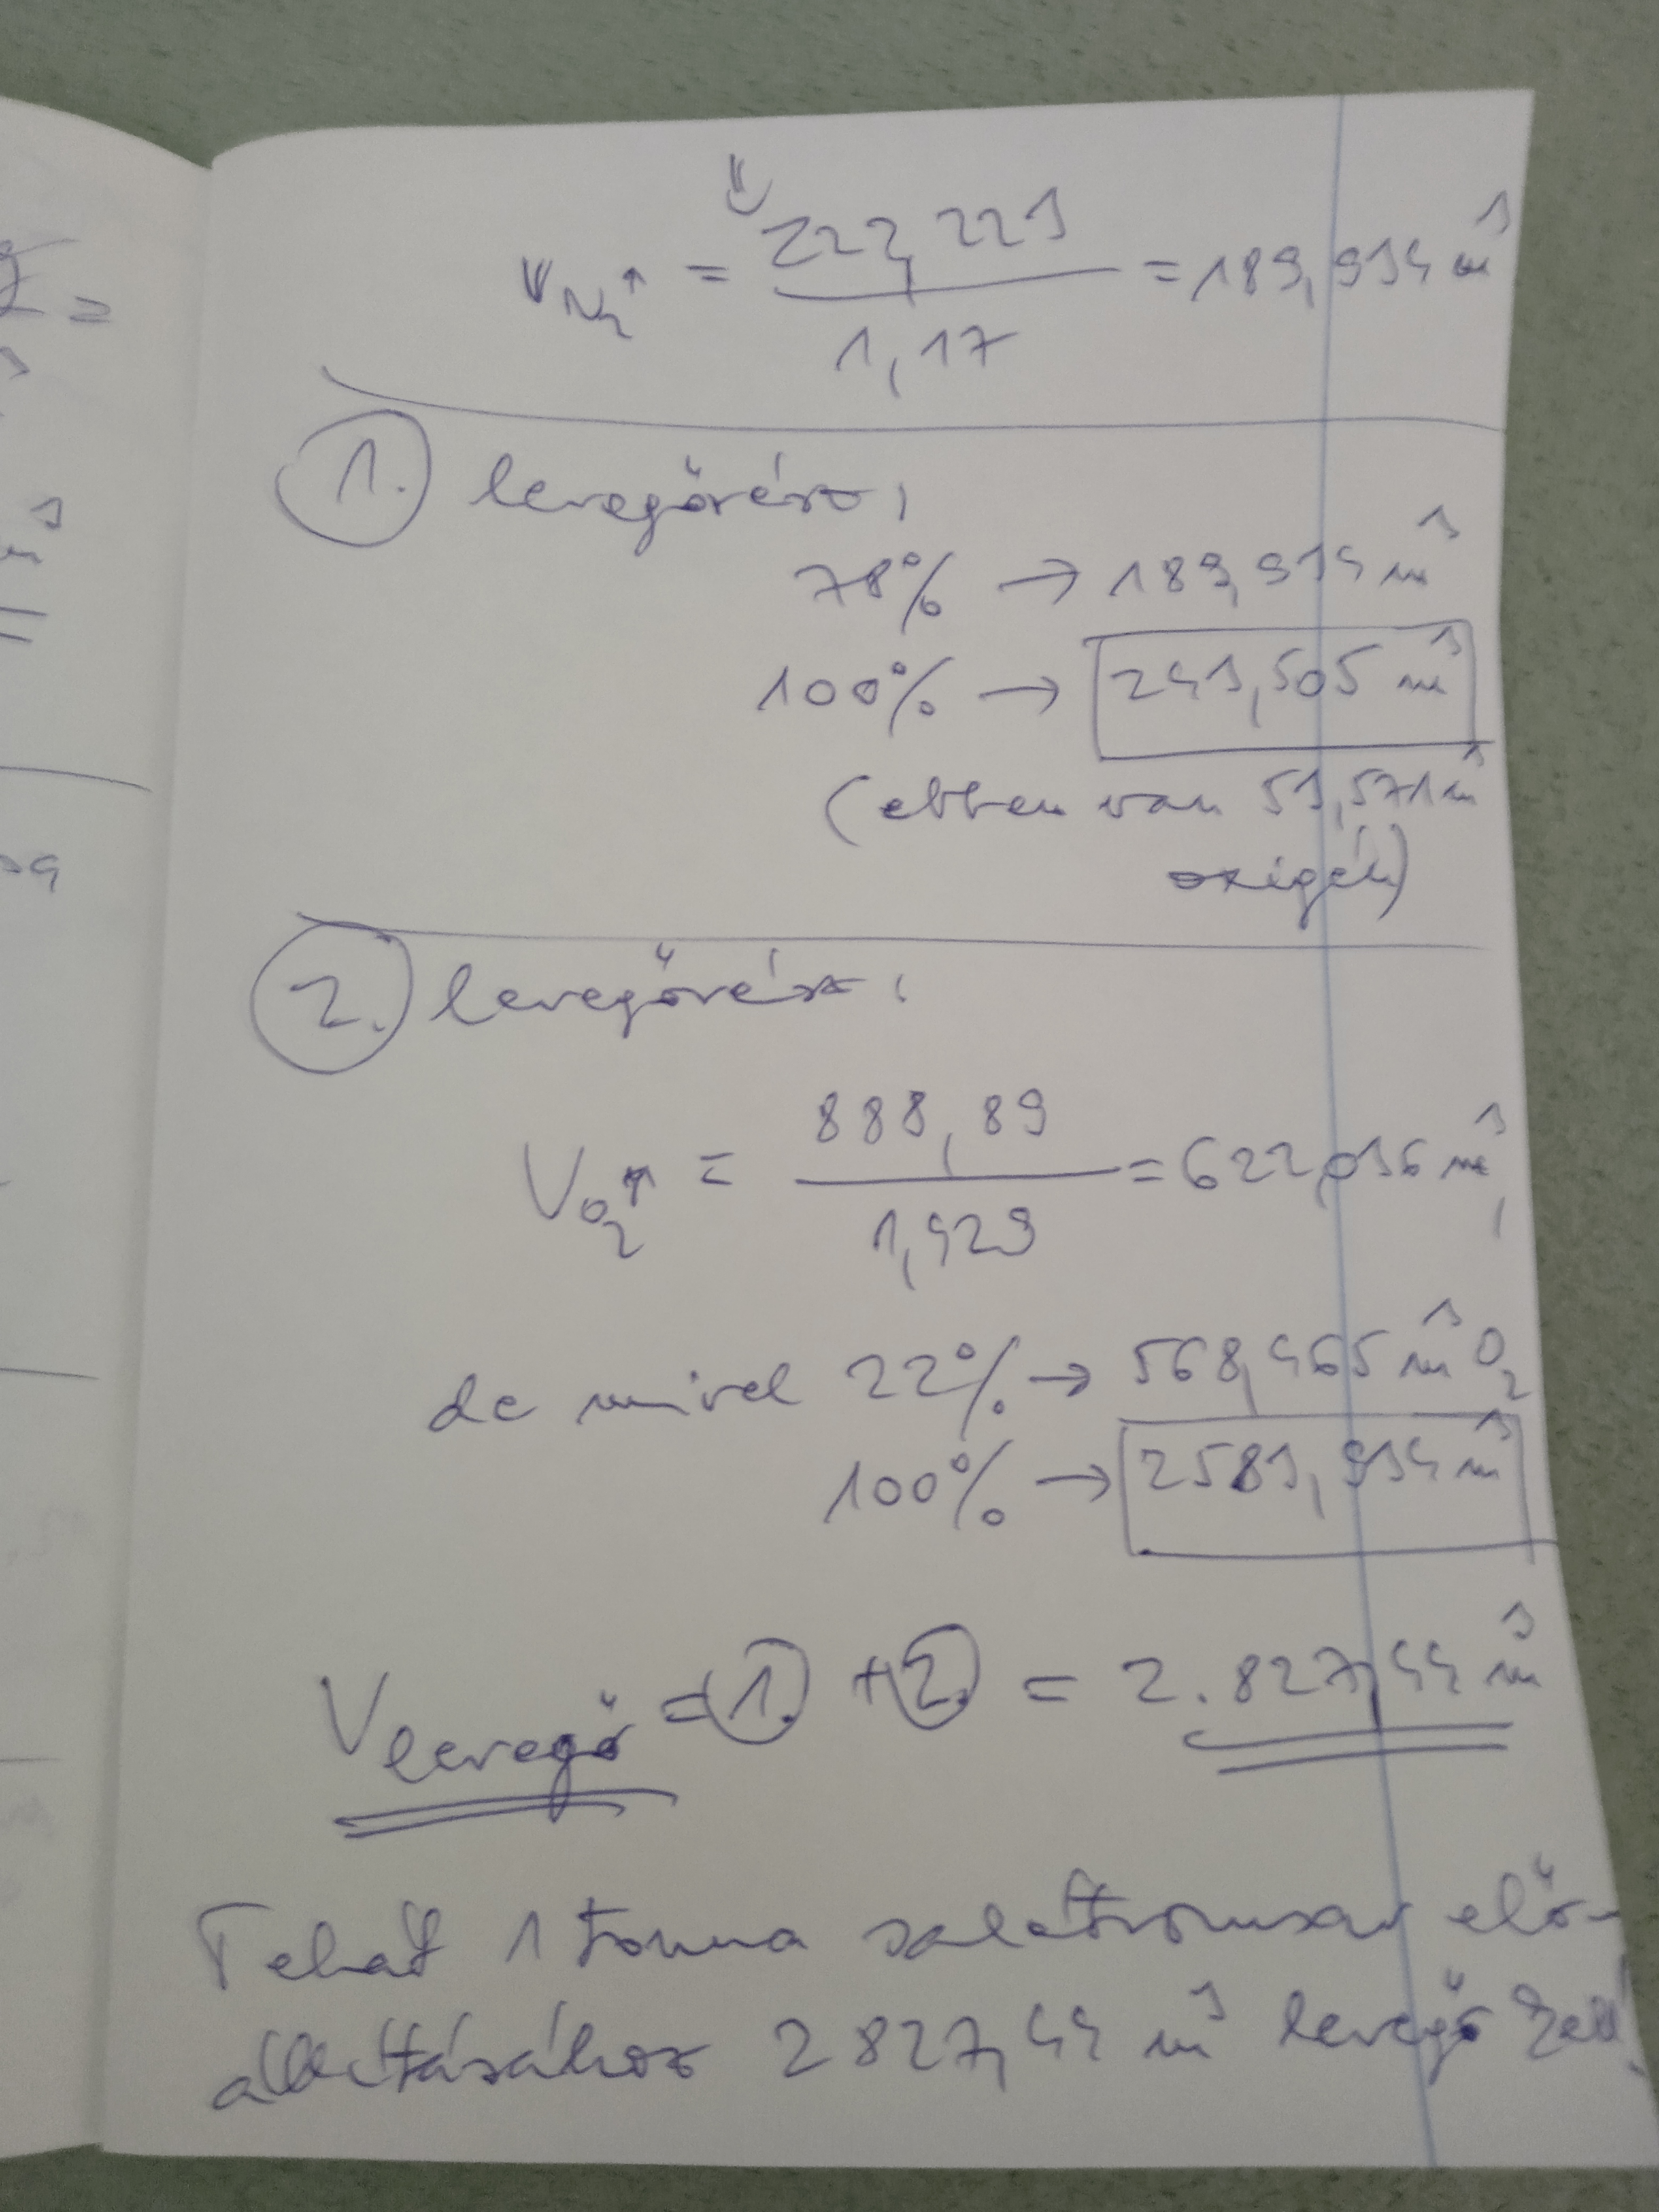 V N₂↑ = 222,223 / 1,17 = 189,934 m³
1. levegőrész:
78% → 189,934 m³
100% → 243,505 m³
(ebben van 53,571 m³
oxigén)
2. levegőrész:
V O₂↑ = 888,89 / 1,429 = 622,036 m³,
de mivel 22% → 568,465 m³ O₂
100% → 2583,934 m³
V levegő = 1. + 2. = 2.827,44 m³
Tehát 1 tonna salétromsav elő-
állításához 2827,44 m³ levegő kell.